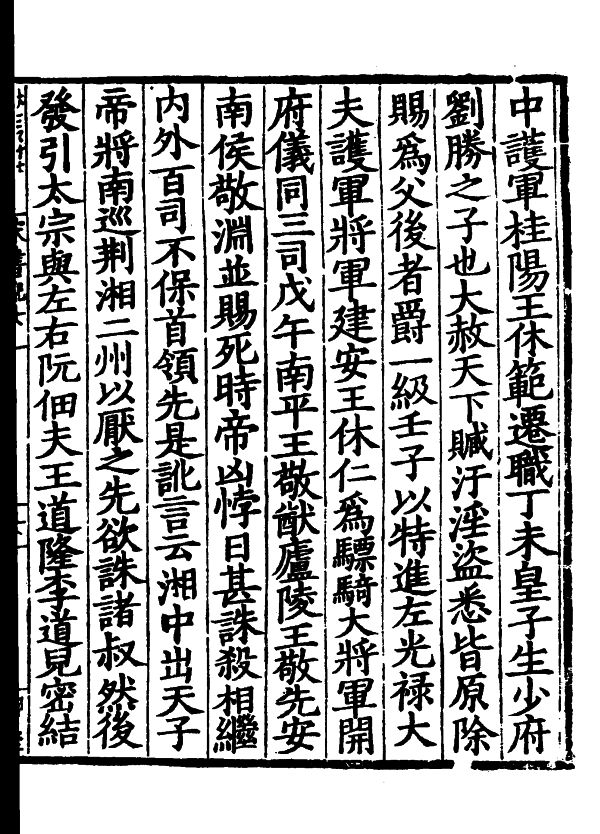 中護軍桂陽王休範遷職丁未皇子生少府
劉勝之子也大赦天下贓汙淫盜悉皆原除
賜爲父後者爵一級壬子以特進左光禄大
夫護軍將軍建安王休仁爲驃騎大將軍開
府儀同三司戊午南平王敬猷廬陵王敬先安
南侯敬淵並賜死時帝凶悖日甚誅殺相繼
內外百司不保首領先是訛言云湘中出天子
帝將南巡荆湘二州以厭之先欲誅諸叔然後
發引太宗與左右阮佃夫王道隆李道兒密結